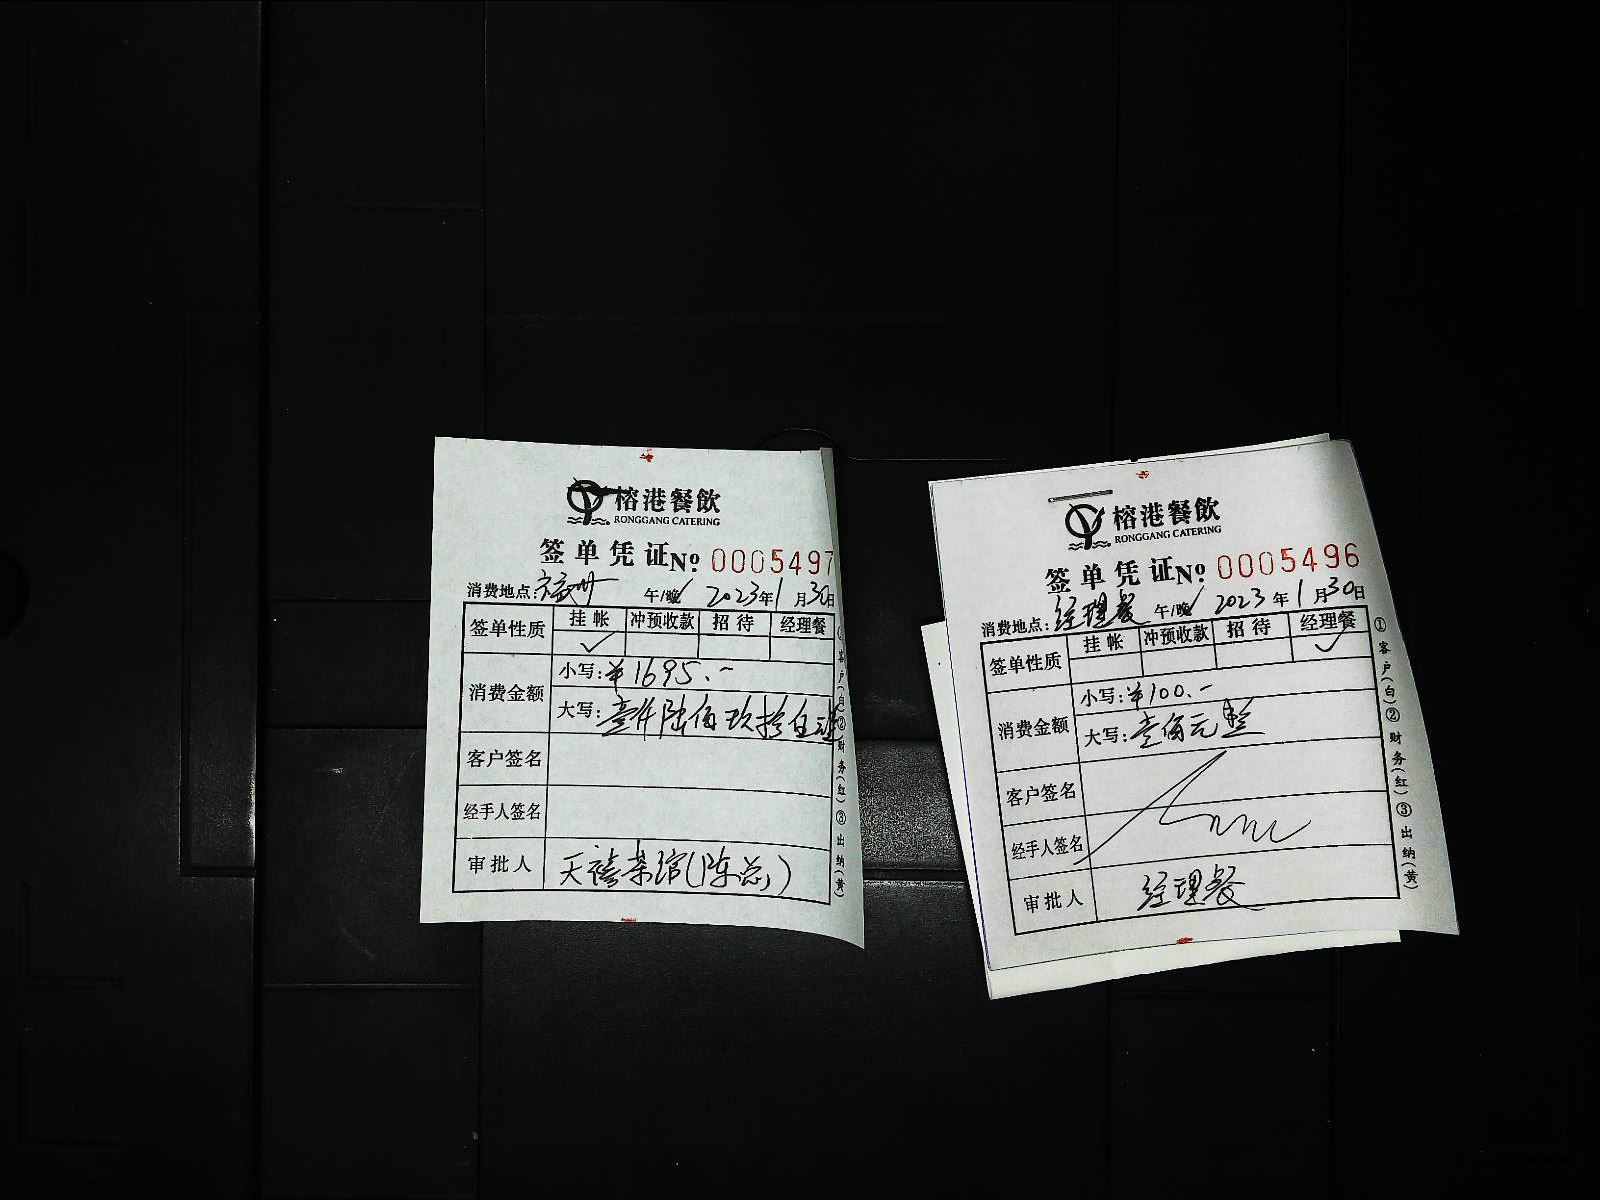 榕港餐飲
RONGGANG CATERING
签单凭证 No 0005497
消费地点: 福州 午/晚 2023年1月30日
签单性质 挂帐 冲预收款 招待 经理餐
✓
消费金额
小写: ¥1695.-
大写: 壹仟陆佰玖拾
客户签名
经手人签名
审批人 天禧茶馆(陈总)
①客户(白)②财务(红)③出纳(黄)
榕港餐飲
RONGGANG CATERING
签单凭证 No 0005496
消费地点: 经理餐 午/晚 2023年1月30日
签单性质 挂帐 冲预收款 招待 经理餐
✓
消费金额
小写: ¥100.-
大写: 壹佰元整
客户签名
经手人签名
审批人 经理餐
①客户(白)②财务(红)③出纳(黄)